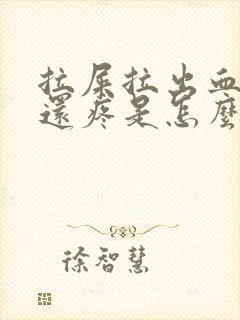 拉屎拉出血
還疼是怎麼
徐智慧